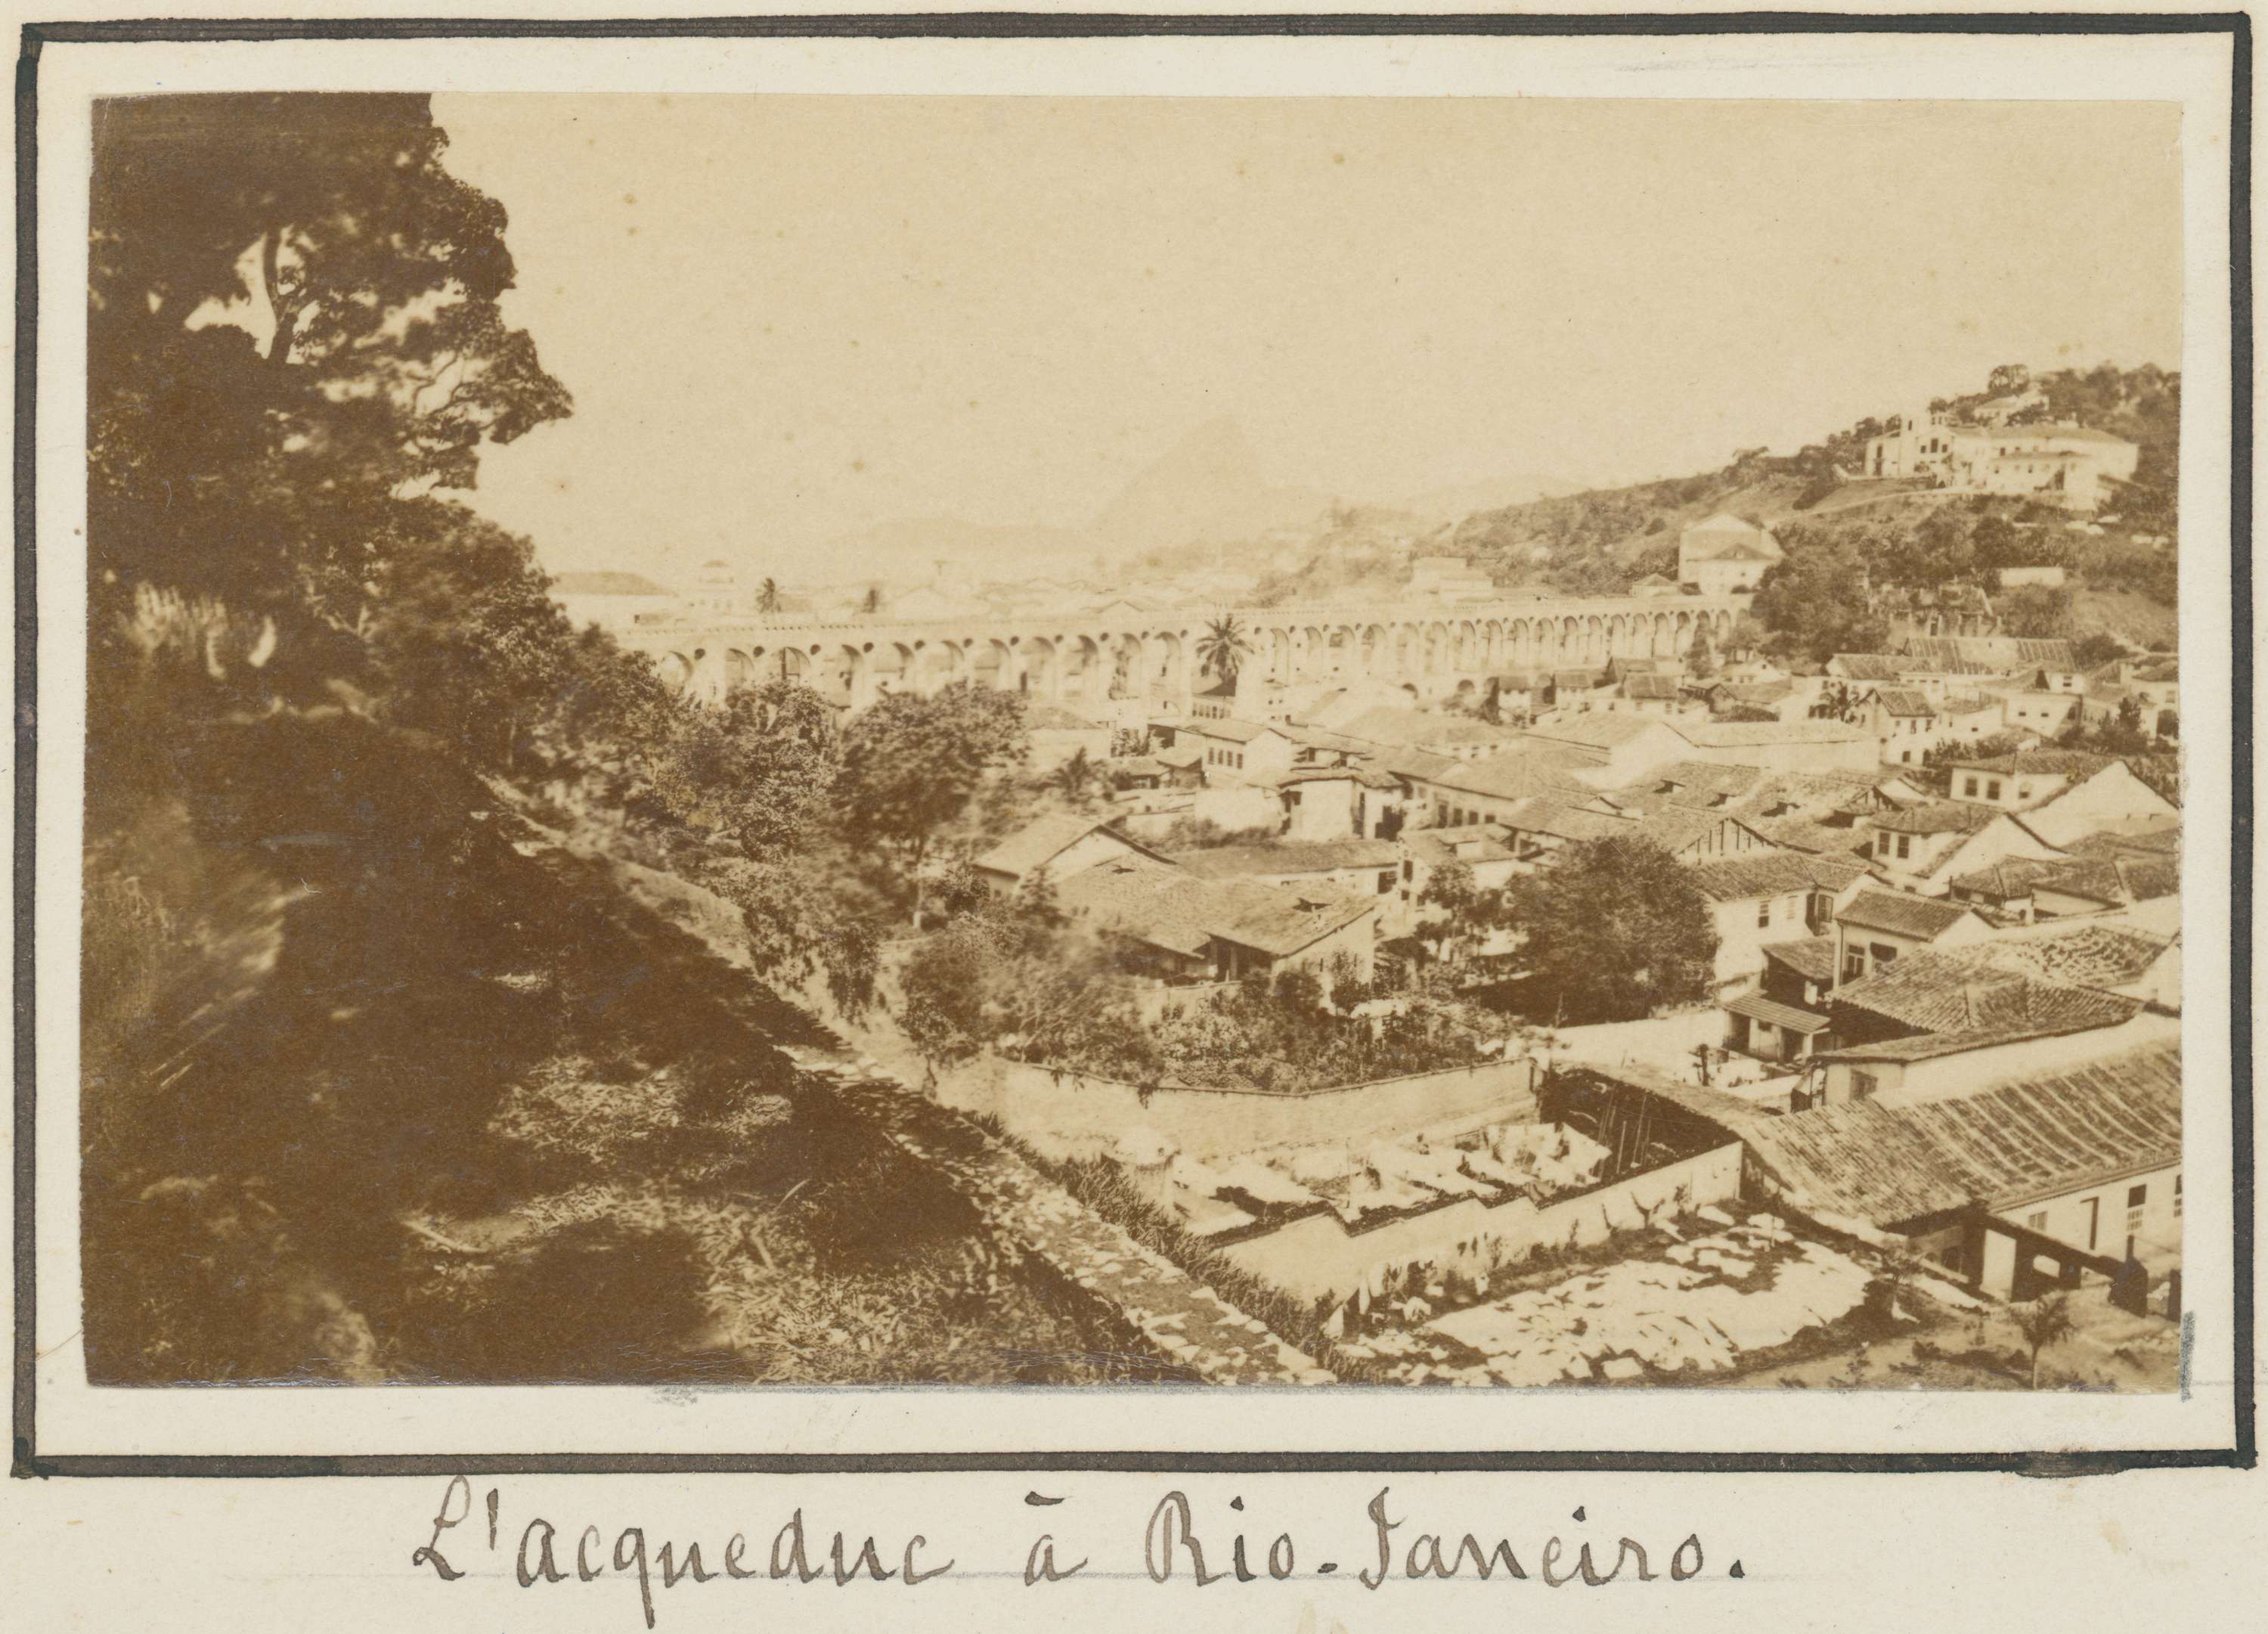 L'acqueduc à Rio-Janeiro.